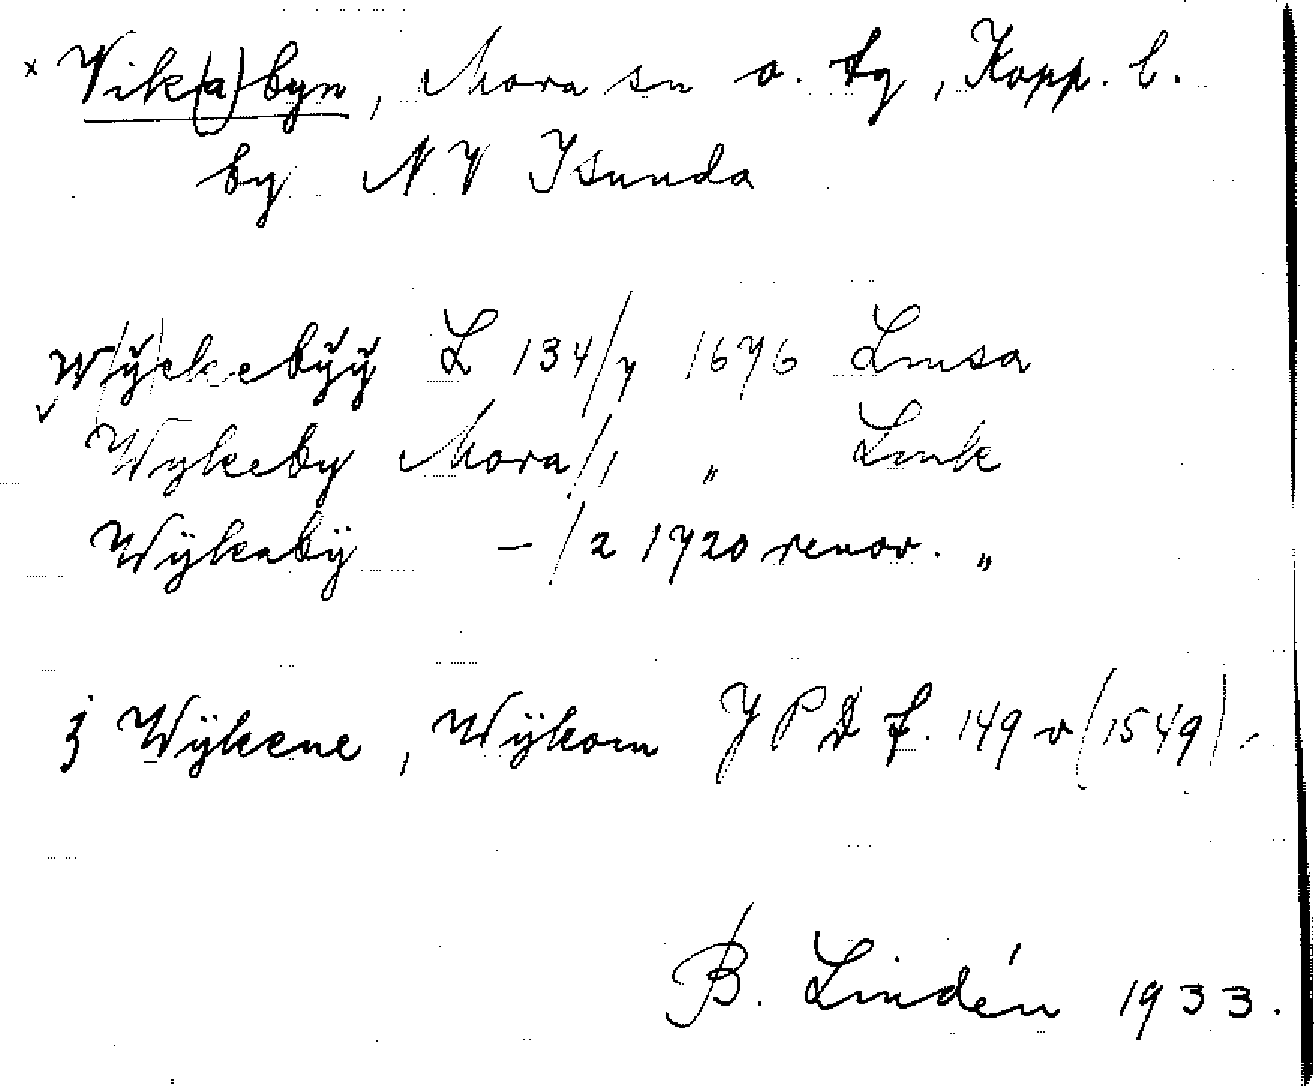 x Vik(a)byn, Mora sn o. tg, Kopp. l.
by NV Isunda
W(ÿ)ckebÿÿ L 134/7 1676 Lmsa
Wykeby Mora 1/1 " Lmk
Wÿkabÿ — /2 1720 renov. "
j Wÿkene, Wÿkom JPD f. 149 v (1549).
B. Lindén 1933.